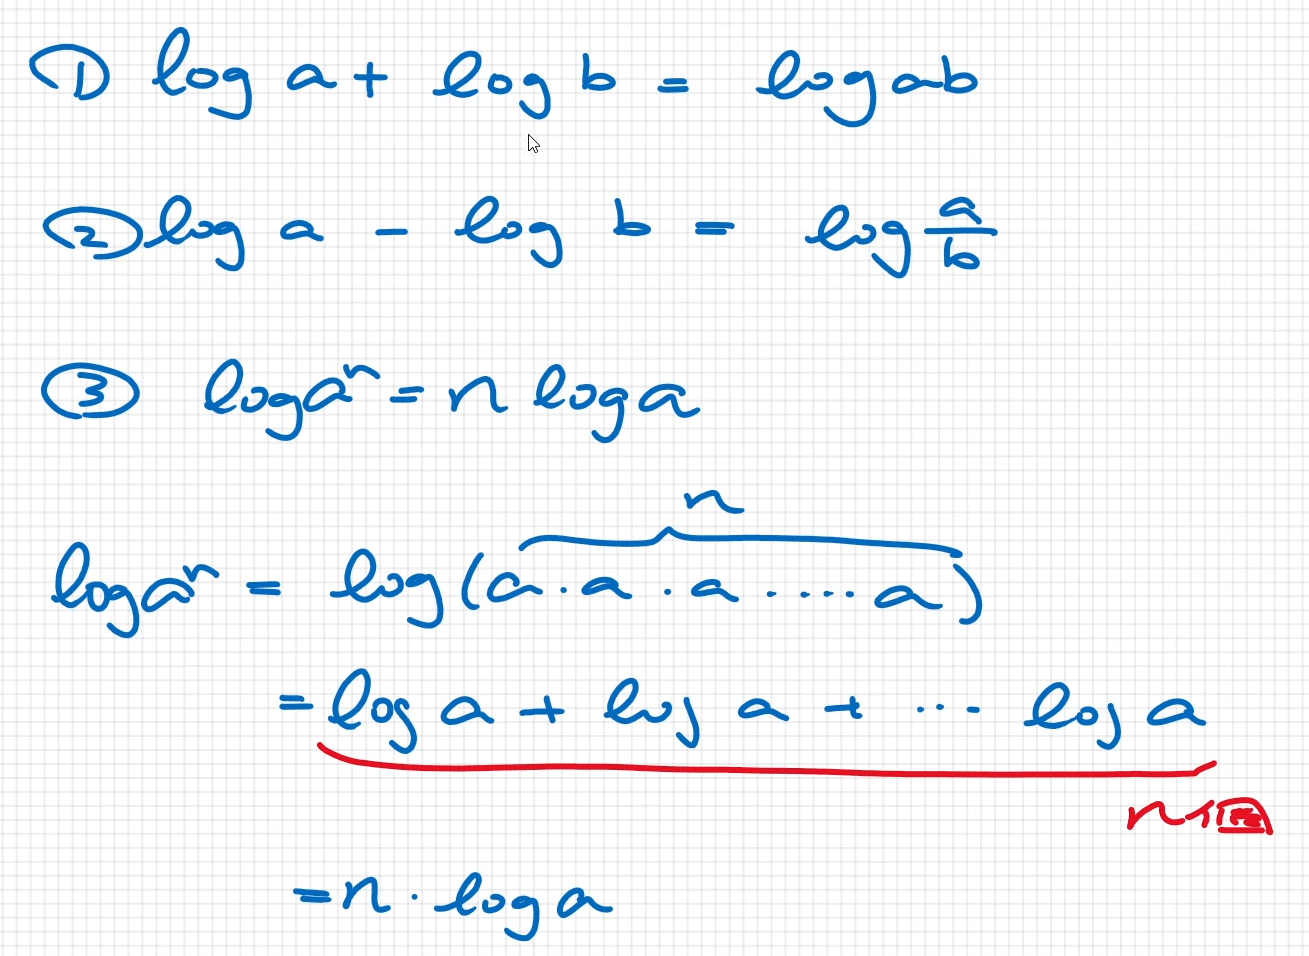 ① log a + log b = log ab
② log a - log b = log a/b
③ log aⁿ = n log a
n
log aⁿ = log(a · a · a · ···· a)
= log a + log a + ··· log a
n個
= n · log a